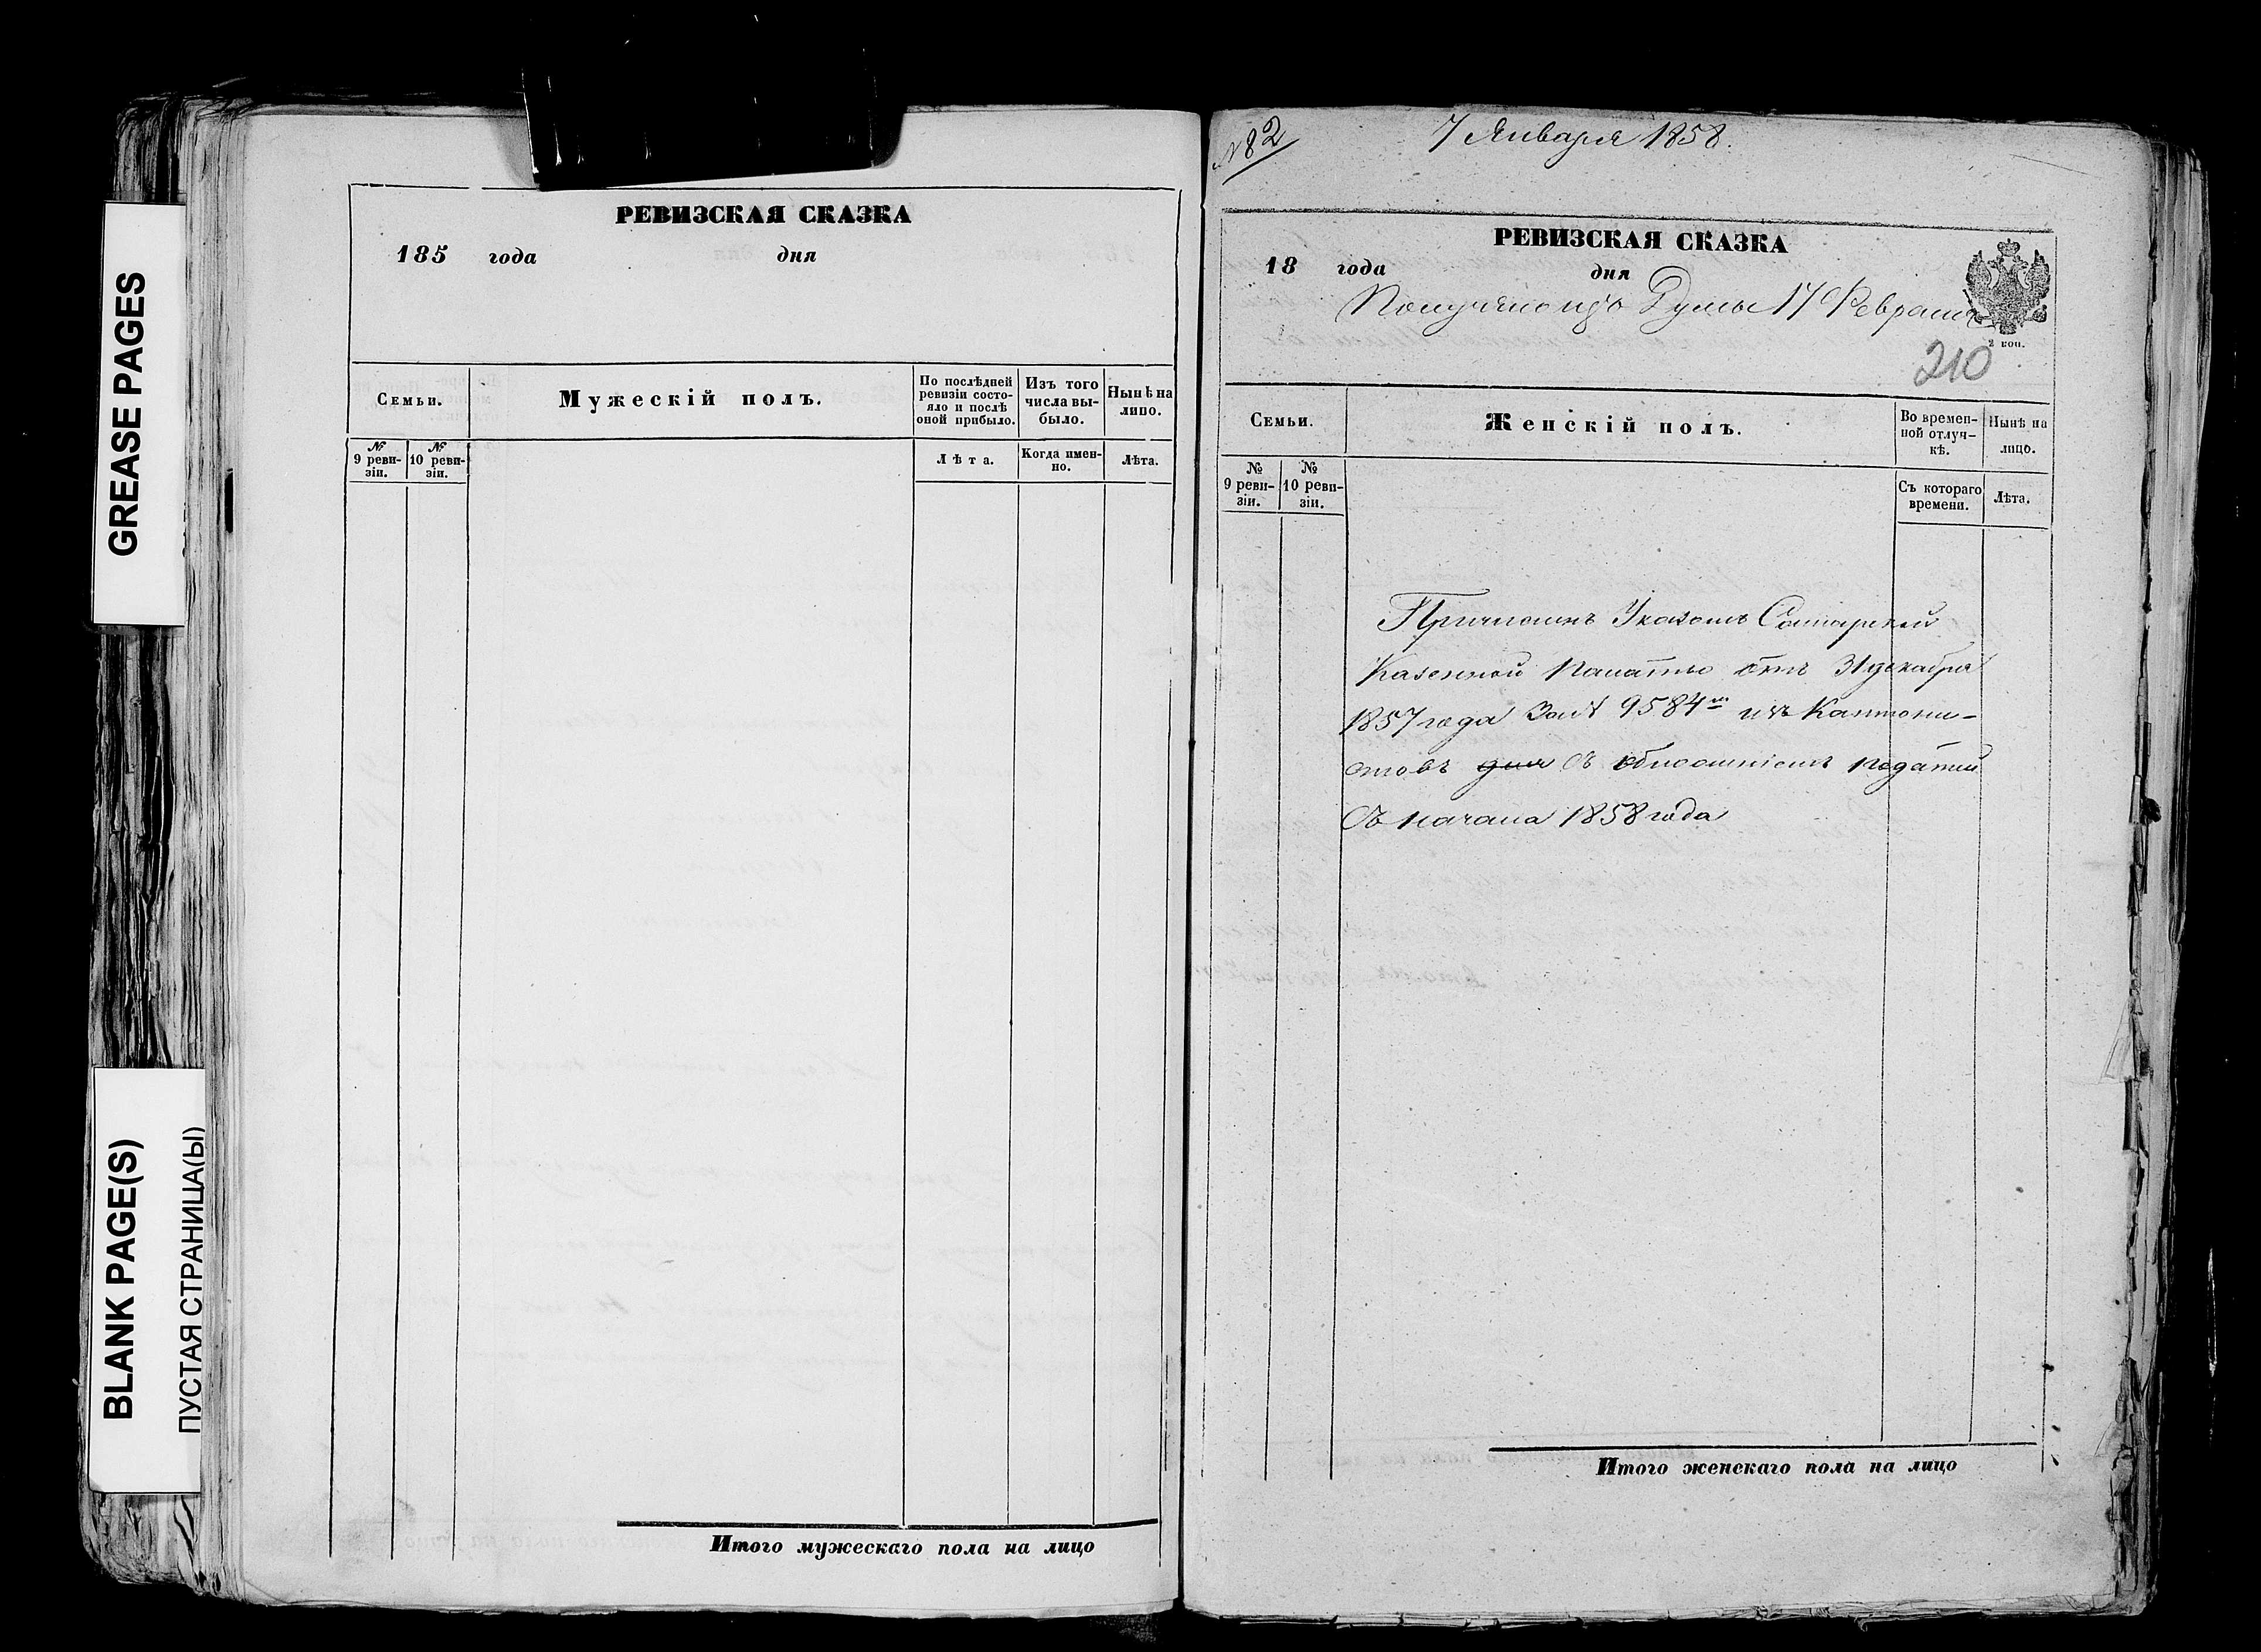 GREASE PAGES
BLANK PAGE(S)
ПУСТАЯ СТРАНИЦА(Ы)
РЕВИЗСКАЯ СКАЗКА
185 года дня
Семьи.
Мужескій полъ.
По послѣдней
ревизіи состо-
яло и послѣ
оной прибыло.
Изъ того
числа вы-
было.
Нынѣ на
лицо.
№
9 реви-
зіи.
№
10 реви-
зіи.
Лѣта.
Когда имен-
но.
Лѣта.
Итого мужескаго пола на лицо
№82
7 Января 1858.
РЕВИЗСКАЯ СКАЗКА
18 года дня
Получено изъ Думы 17 Февраля
2 коп.
210
Семьи.
Женскій полъ.
Во времен-
ной отлуч-
кѣ.
Нынѣ на
лицо.
№
9 реви-
зіи.
№
10 реви-
зіи.
Съ котораго
времени.
Лѣта.
Причисленъ Указомъ Самарской
Казенной Палаты отъ 31 декабря
1857 года за № 9584 изъ Кантони-
стовъ для съ податей
Съ начала 1858 года
Итого женскаго пола на лицо